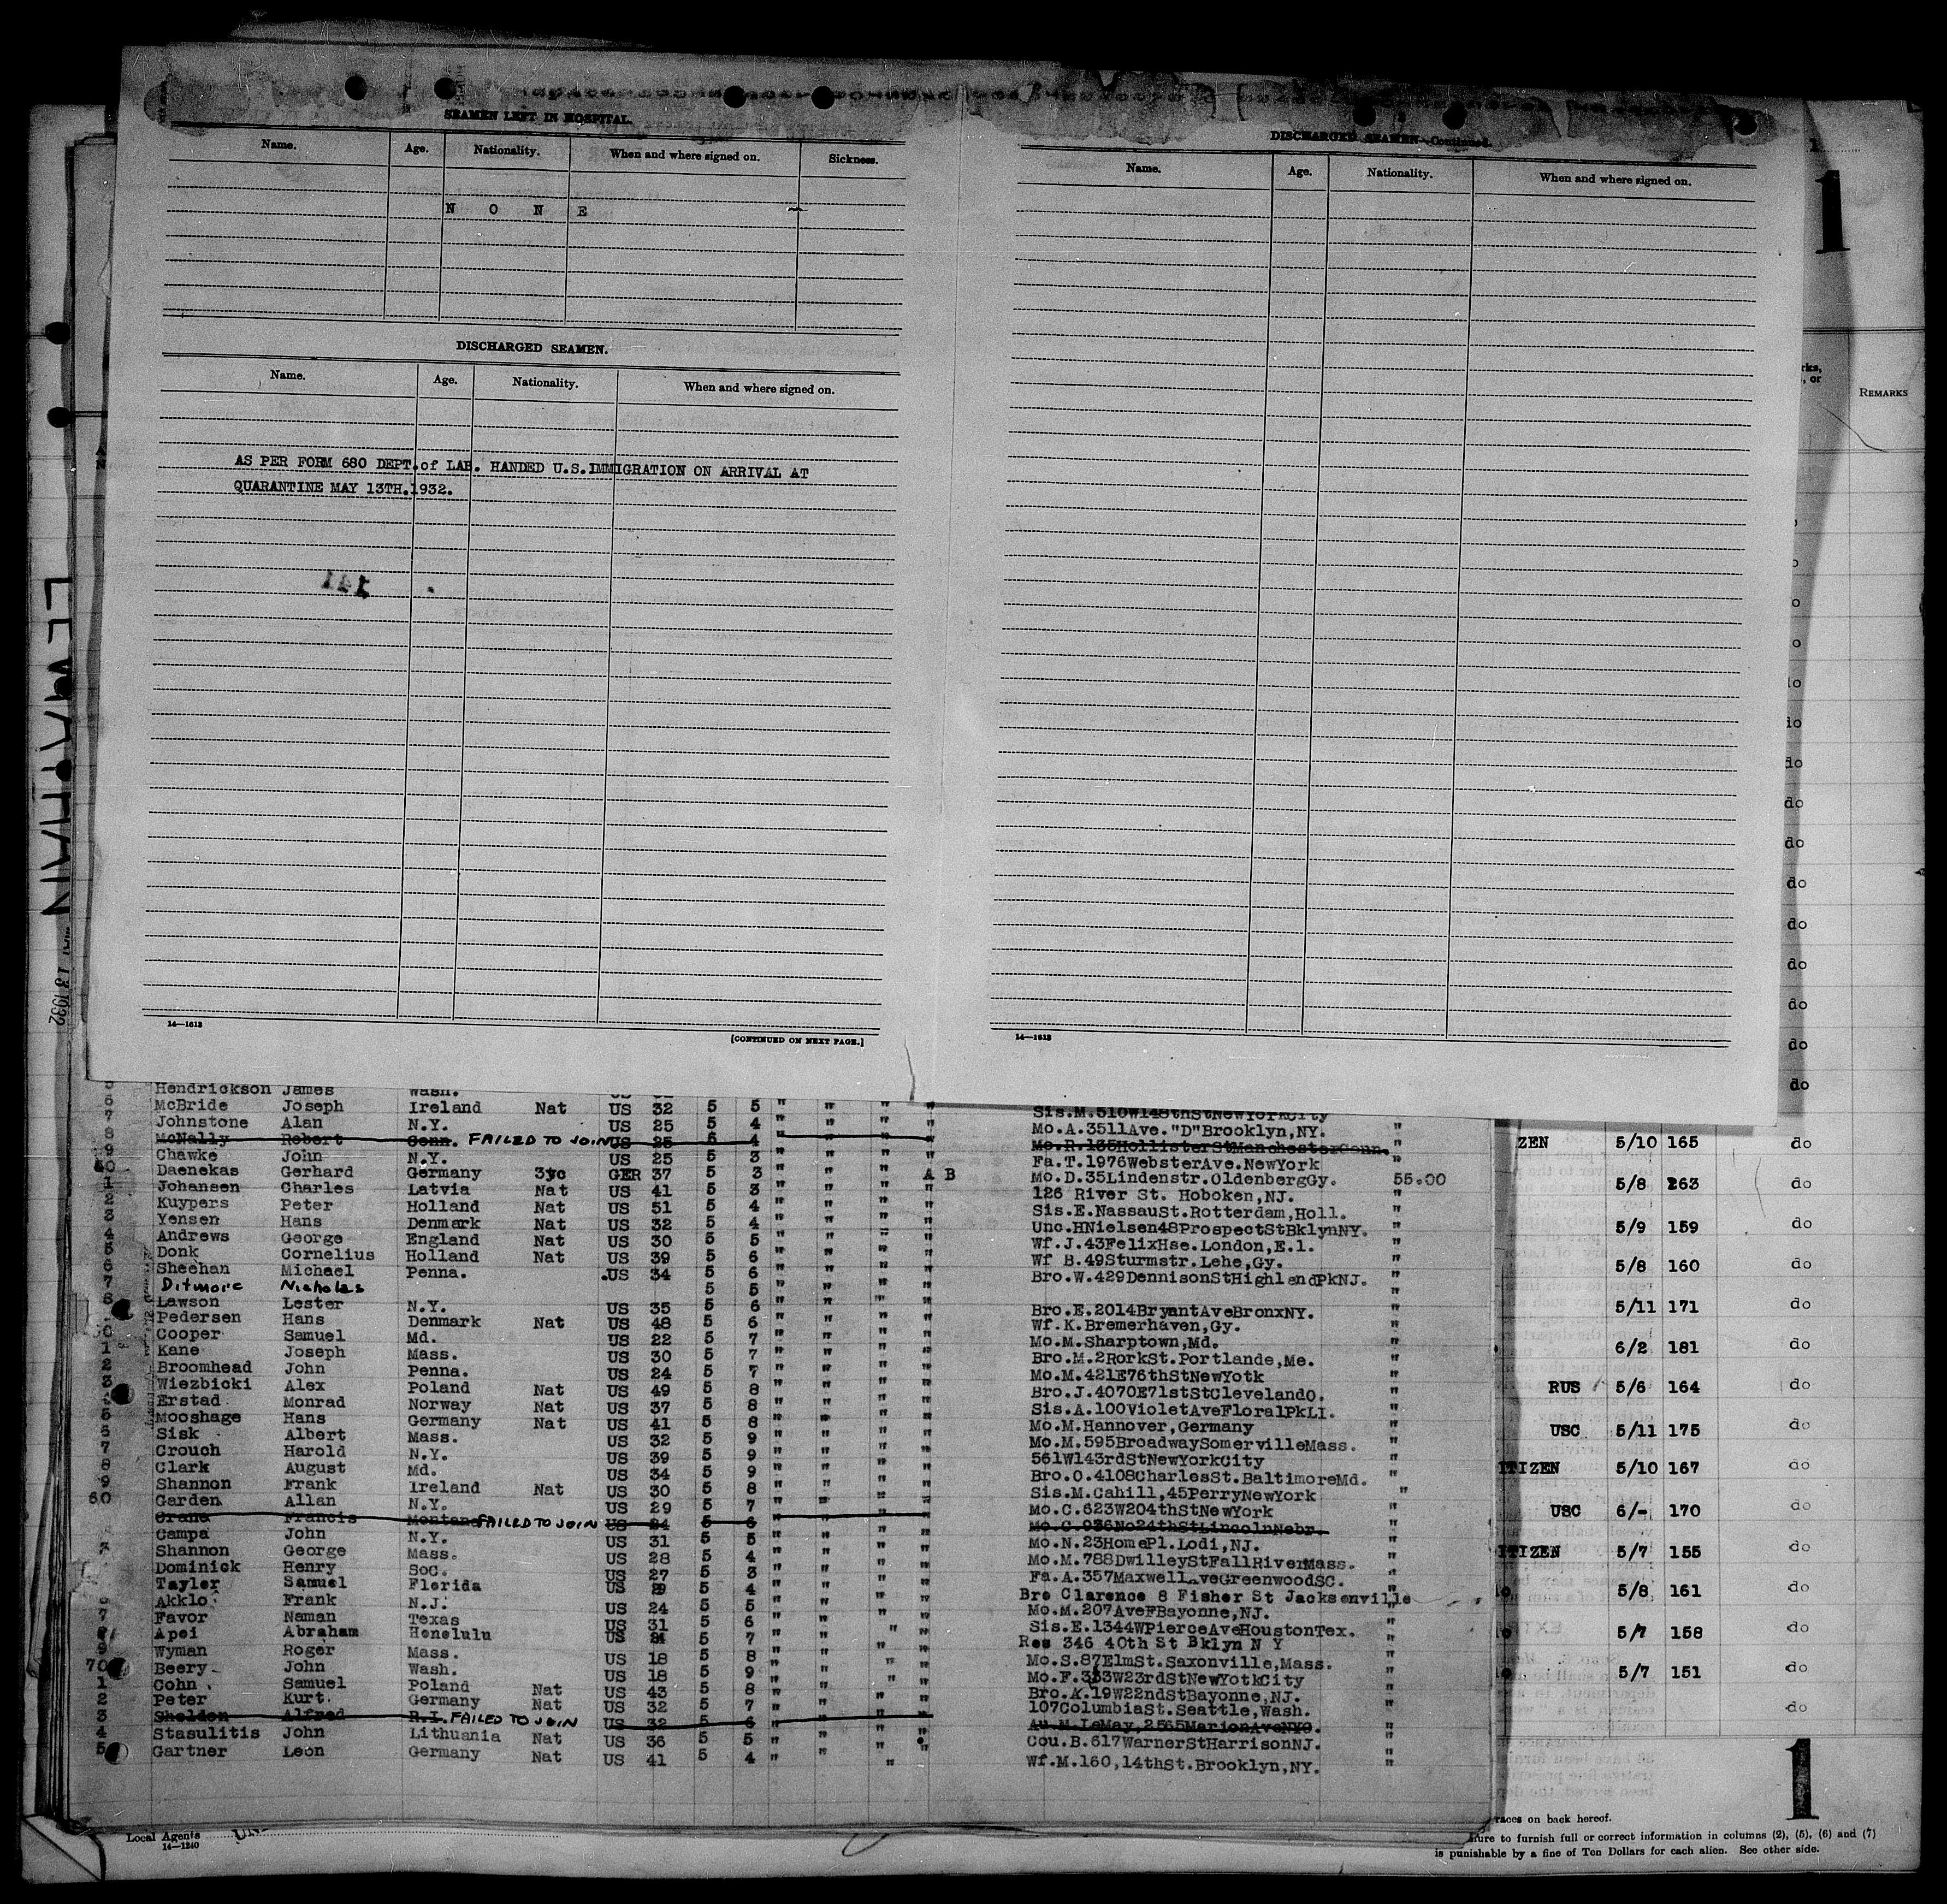 SEAMEN LEFT IN HOSPITAL.
Name. Age. Nationality. When and where signed on. Sickness.
N O N E
DISCHARGED SEAMEN.
Name. Age. Nationality. When and where signed on.
AS PER FORM 680 DEPT.of LAB. HANDED U.S.IMMIGRATION ON ARRIVAL AT
QUARANTINE MAY 13TH.1932.
141
14—1613
[CONTINUED ON NEXT PAGE.]
DISCHARGED SEAMEN—Continued.
Name. Age. Nationality. When and where signed on.
14—1613
1
REMARKS
LEVIATHAN
13 1932
Hendrickson James Wash.
6 McBride Joseph Ireland Nat US 32 5 5 " " " " Sis.M.510W148thStNewYorkCity
7 Johnstone Alan N.Y. US 25 5 4 " " " " Mo.A.3511Ave."D"Brooklyn,NY. "
8 McNally Robert Conn. FAILED TO JOIN US 25 5 4 Mo.R.135HollisterStManchesterConn.
9 Chawke John N.Y. US 25 5 3 " " " " Fa.T.1976WebsterAve.NewYork "
Daenekas Gerhard Germany 3yc GER 37 5 3 " " " A B Mo.D.35Lindenstr.OldenbergGy. 55.00
1 Johansen Charles Latvia Nat US 41 5 3 " " " " 126 River St. Hoboken,NJ. "
2 Kuypers Peter Holland Nat US 51 5 4 " " " " Sis.E.NassauSt.Rotterdam,Holl. "
3 Yensen Hans Denmark Nat US 32 5 4 " " " " Unc.HNielsen48ProspectStBklynNY. "
4 Andrews George England Nat US 30 5 5 " " " " Wf.J.43FelixHse.London,E.1. "
5 Donk Cornelius Holland Nat US 39 5 6 " " " " Wf B.49Sturmstr.Lehe,Gy. "
6 Sheehan Michael Penna. US 34 5 6 " " " " Bro.W.429DennisonStHighlandPkNJ. "
7 Ditmore Nicholas 5 5 " " " "
8 Lawson Lester N.Y. US 35 5 6 " " " " Bro.E.2014BryantAveBronxNY. "
Pedersen Hans Denmark Nat US 48 5 6 " " " " Wf.K.Bremerhaven,Gy. "
Cooper Samuel Md. US 22 5 7 " " " " Mo.M.Sharptown,Md. "
1 Kane Joseph Mass. US 30 5 7 " " " " Bro.M.2RorkSt.Portlande,Me. "
2 Broomhead John Penna. US 24 5 7 " " " " Mo.M.421E76thStNewYotk "
3 Wiezbicki Alex Poland Nat US 49 5 8 " " " " Bro.J.4070E71stStClevelandO. "
Erstad Monrad Norway Nat US 37 5 8 " " " " Sis.A.100VioletAveFloralPkLI. "
5 Mooshage Hans Germany Nat US 41 5 8 " " " " Mo.M.Hannover,Germany "
6 Sisk Albert Mass. US 32 5 9 " " " " Mo.M.595BroadwaySomervilleMass. "
7 Crouch Harold N.Y. US 39 5 9 " " " " 561W143rdStNewYorkCity "
8 Clark August Md. US 34 5 9 " " " " Bro.O.4108CharlesSt.BaltimoreMd. "
9 Shannon Frank Ireland Nat US 30 5 8 " " " " Sis.M.Cahill,45PerryNewYork "
60 Garden Allan N.Y. US 29 5 7 " " " " Mo.C.623W204thStNewYork "
Crane Francis Montana FAILED TO JOIN US 24 5 6 Mo.C.936No24thStLincolnNebr.
Campa John N.Y. US 31 5 5 " " " " Mo.N.23HomePl.Lodi,NJ. "
Shannon George Mass. US 28 5 4 " " " " Mo.M.788DwilleyStFallRiverMass. "
Dominick Henry SoC. US 27 5 3 " " " " Fa.A.357MaxwellAveGreenwoodSC. "
Tayler Samuel Florida US 5 4 " " " " Bro Clarence 8 Fisher St Jacksonville
Akklo Frank N.J. US 24 5 5 " " " " Mo.M.207AveFBayonne,NJ. "
7 Favor Naman Texas US 31 5 6 " " " " Sis.E.1344WPierceAveHoustonTex. "
Apei Abraham Honolulu US 5 7 " " " Res 346 40th St Bklyn N Y "
9 Wyman Roger Mass. US 18 5 8 " " " Mo.S.87ElmSt.Saxonville,Mass. "
70 Beery John Wash. US 18 5 9 " " " Mo.F.333W23rdStNewYotkCity "
1 Cohn Samuel Poland Nat US 43 5 8 " " " Bro.A.19W22ndStBayonne,NJ. "
2 Peter Kurt Germany Nat US 32 5 7 " " " " 107ColumbiaSt.Seattle,Wash. "
3 Sheldon Alfred R.I. FAILED TO JOIN US 32 5 6 Au.M.LeMay,2565MarionAveNYC.
4 Stasulitis John Lithuania Nat US 36 5 5 " " " " Cou.B.617WarnerStHarrisonNJ. "
5 Gartner Leon Germany Nat US 41 5 4 " " " Wf.M.160,14thSt.Brooklyn,NY. "
do
do
do
do
do
do
do
do
do
ZEN 5/10 165 do
5/8 263 do
5/9 159 do
5/8 160 do
5/11 171 do
6/2 181 do
RUS 5/6 164 do
USC 5/11 175 do
ITIZEN 5/10 167 do
USC 6/- 170 do
ITIZEN 5/7 155 do
5/8 161 do
5/7 158 do
5/7 151 do
do
1
Local Agents
14—1240
races on back hereof.
lure to furnish full or correct information in columns (2), (5), (6) and (7)
is punishable by a fine of Ten Dollars for each alien. See other side.